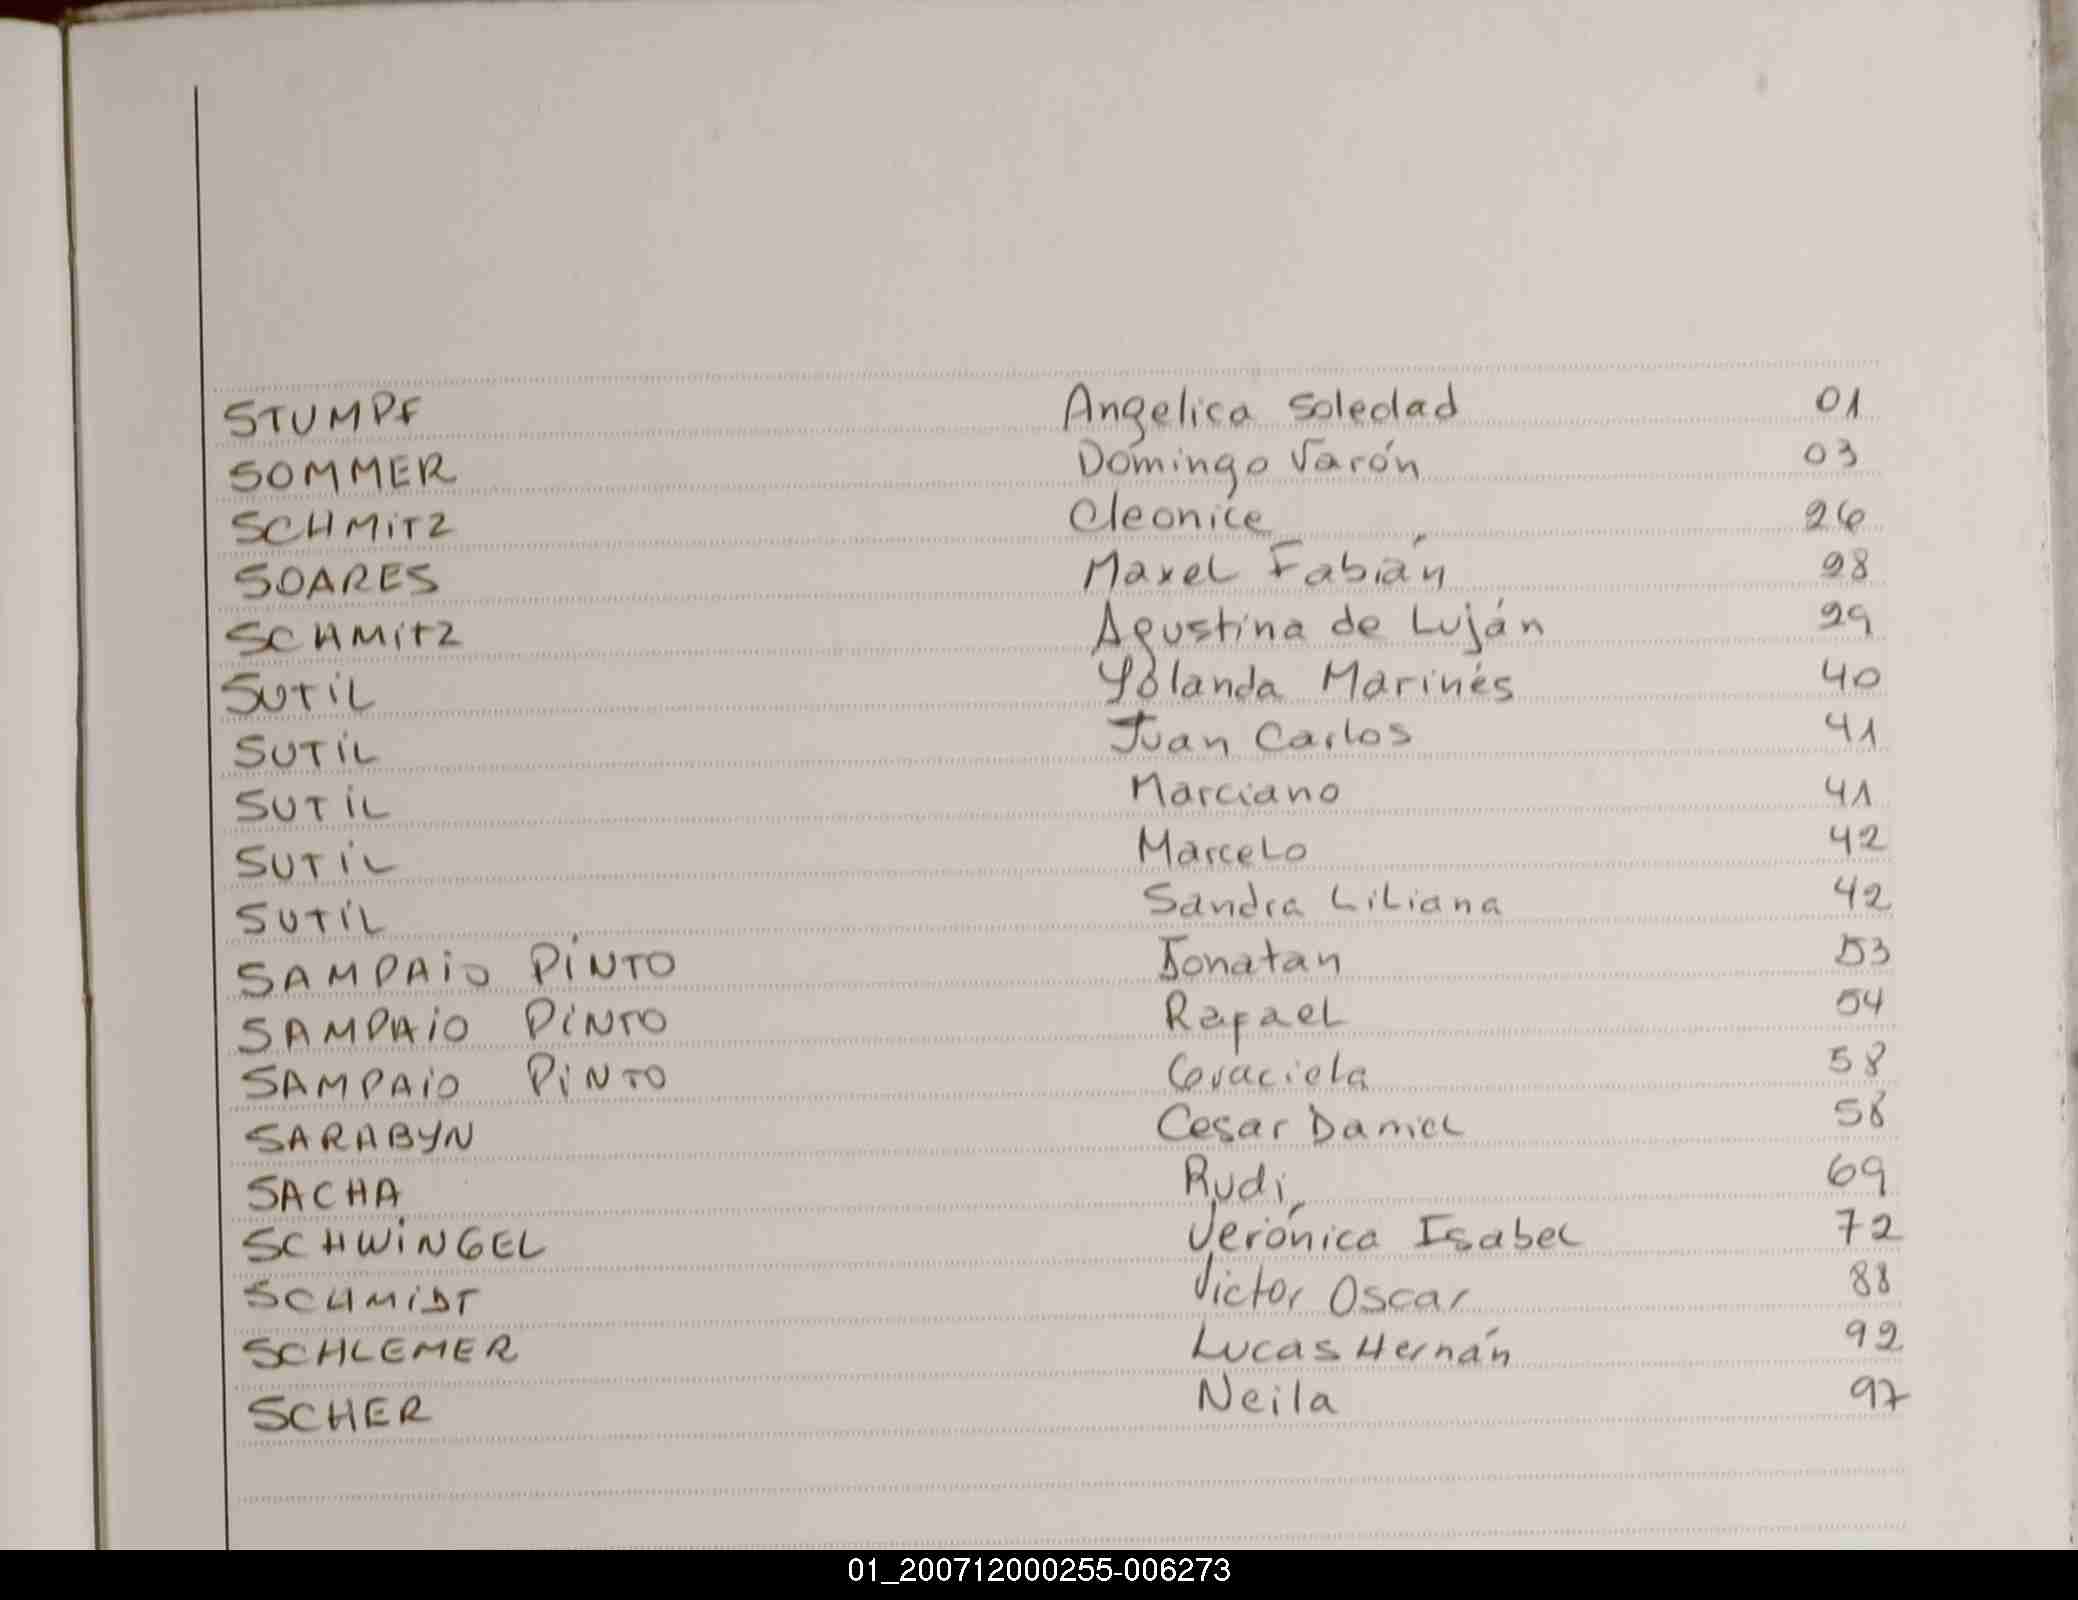 STUMPF Angelica Soledad 01
SOMMER Domingo Varón 03
SCHMiTZ Cleonice 26
SOARES Maxel Fabián 28
SCHMitZ Agustina de Luján 29
SUTiL Yolanda Marinés 40
SUTiL Juan Carlos 41
SUTiL Marciano 41
SUTiL Marcelo 42
SUTiL Sandra Liliana 42
SAMPAiO PiNTO Jonatan 53
SAMPAiO PiNTO Rafael 54
SAMPAiO PiNTO Graciela 58
SARABYN Cesar Daniel 58
SACHA Rudi 69
SCHWiNGEL Verónica Isabel 72
SCHMiDT Victor Oscar 88
SCHLEMER Lucas Hernán 92
SCHER Neila 97
01_200712000255-006273